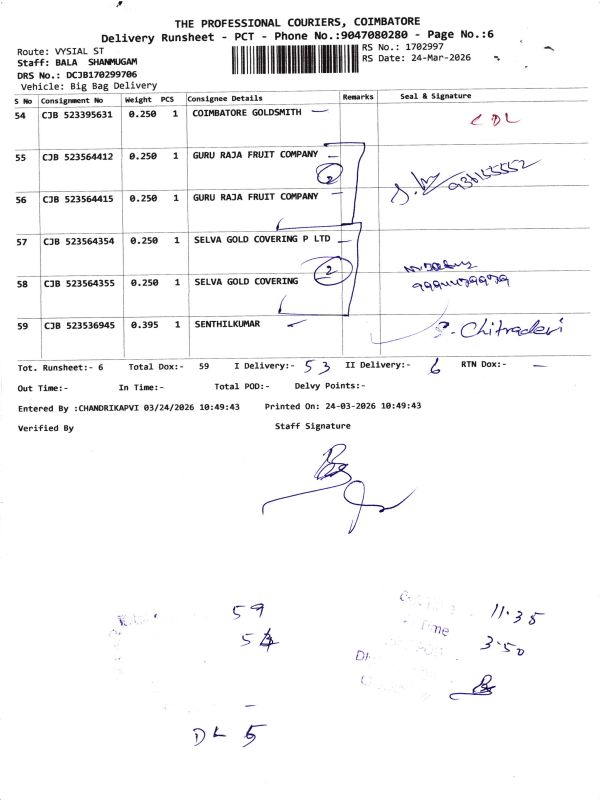 THE PROFESSIONAL COURIERS, COIMBATORE
Delivery Runsheet - PCT - Phone No.:9047080280 - Page No.:6
Route: VYSIAL ST
RS No.: 1702997
Staff: BALA SHANMUGAM
RS Date: 24-Mar-2026
DRS No.: DCJB170299706
Vehicle: Big Bag Delivery
S No Consignment No Weight PCS Consignee Details Remarks Seal & Signature
54 CJB 523395631 0.250 1 COIMBATORE GOLDSMITH
55 CJB 523564412 0.250 1 GURU RAJA FRUIT COMPANY
2
56 CJB 523564415 0.250 1 GURU RAJA FRUIT COMPANY
57 CJB 523564354 0.250 1 SELVA GOLD COVERING P LTD
2
58 CJB 523564355 0.250 1 SELVA GOLD COVERING
59 CJB 523536945 0.395 1 SENTHILKUMAR S. Chitradevi
Tot. Runsheet:- 6 Total Dox:- 59 I Delivery:- 53 II Delivery:- 6 RTN Dox:- -
Out Time:- In Time:- Total POD:- Delvy Points:-
Entered By :CHANDRIKAPVI 03/24/2026 10:49:43 Printed On: 24-03-2026 10:49:43
Verified By Staff Signature
59
11.35
Time 3.50
DL 5